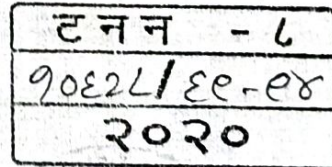 ट न न - ८
१०६२८/६९-९४
२०२०